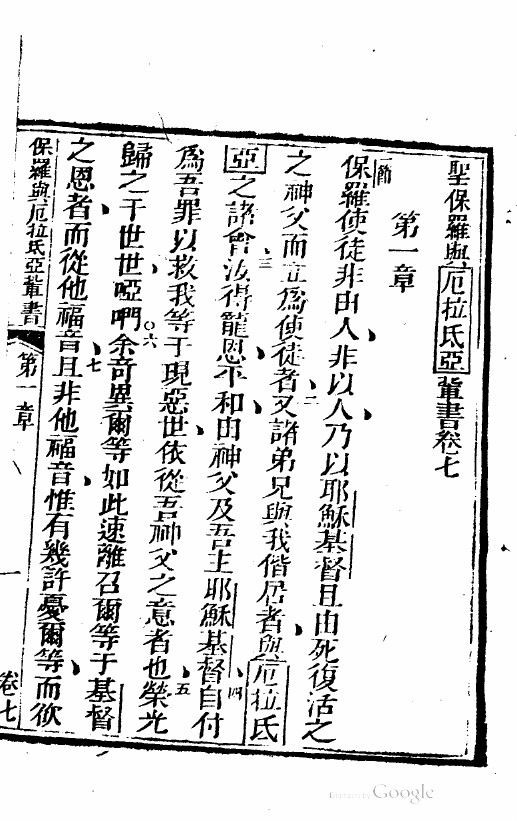 聖保羅與厄拉氏亞輩書卷七
第一章
一節
保羅使徒非由人非以人乃以耶穌基督且由死復活之
之神父而立為使徒者二又諸弟兄與我偕居者與厄拉氏
亞之諸會三汝得寵恩平和由神父及吾主耶穌基督四自付
為吾罪以救我等于現惡世依從吾神父之意者也五榮光
歸之于世世啞們○六余奇異爾等如此速離召爾等于基督
之恩者而從他福音七且非他福音惟有幾許憂爾等而欲
保羅與厄拉氏亞輩書 第一章 一 卷七
Digitized by Google